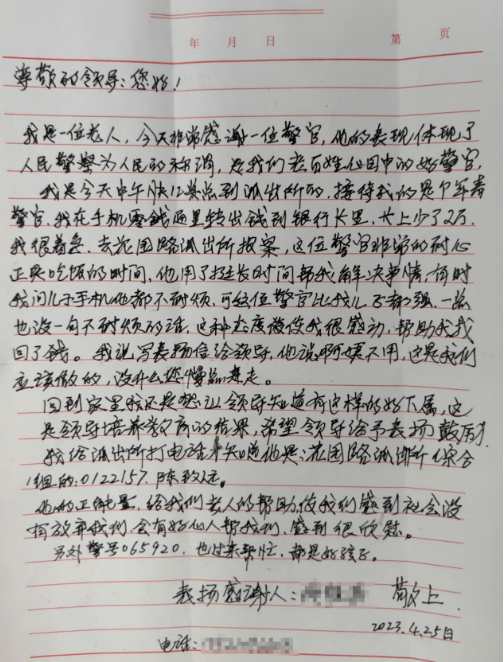 年 月 日 第 页
尊敬的领导：您好！
我是一位老人，今天非常感谢一位警官，他的表现体现了
人民警察为人民的称谓，是我们老百姓心目中的好警官，
我是今天中午快12点到派出所的，接待我的是个年青
警官，我在手机零钱里转出钱到银行卡里，卡上少了2万，
我很着急，去花园路派出所报案，这位警官非常的耐心
正是吃饭的时间，他用了挺长时间帮我解决事情，有时
我问儿子手机他都不耐烦，可这位警官比我儿子都强，一点
也没一句不耐烦的话，这种态度使我很感动，帮助我找
回了钱。我说写表扬信给领导，他说啊姨不用，这是我们
应该做的，没什么您慢点走。
回到家里我还是想让领导知道有这样的好下属，这
是领导培养教育的结果，希望领导给予表扬鼓励，
我给派出所打电话才知道他是：花园路派出所综合
1组的：0122157 陈
他的正能量，给我们老人的帮助，使我们感到社会没
有放弃我们，会有好心人帮我们，感到很欣慰。
另外警号065920，也过来帮忙，都是好孩子。
表扬感谢人： 敬上
2023.4.25日
电话：